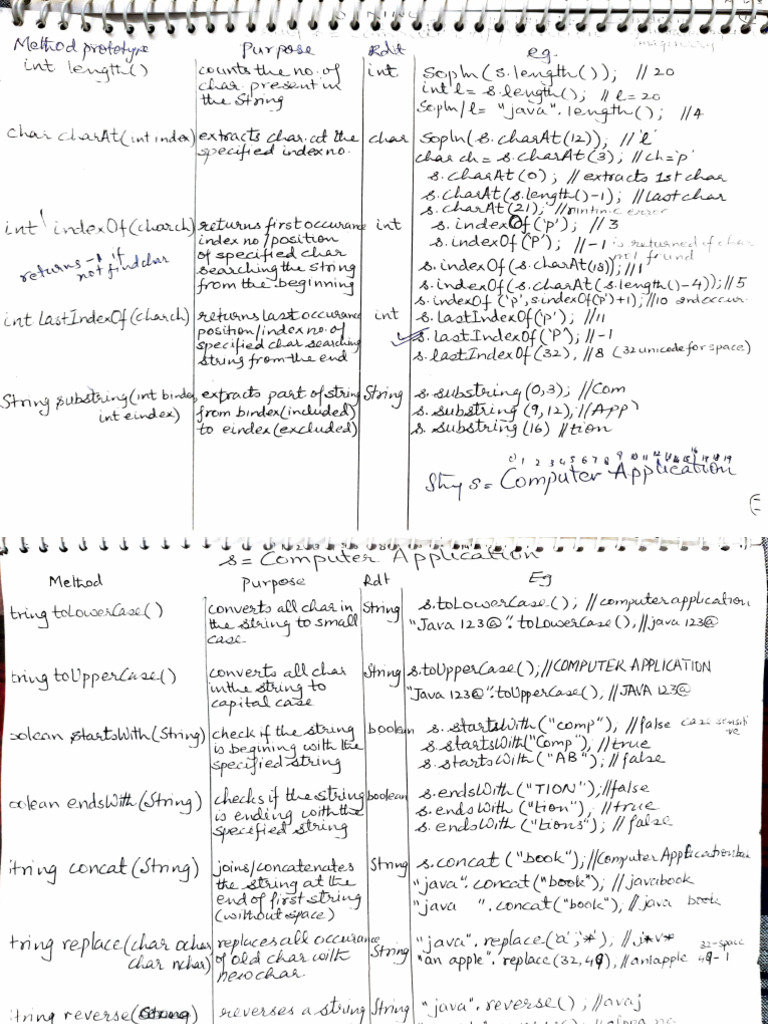 Method prototype | Purpose | Rdt | eg.
int length() | counts the no. of | int | Sopln(s.length()); //20
char present in | int l = s.length(); // l=20
the String | Sopln/l= "java".length(); //4
char charAt(int index) | extracts char at the | char | Sopln(s.charAt(12)); //'l'
specified index no. | char ch = s.charAt(3); //ch='p'
s.charAt(0); // extracts 1st char
s.charAt(s.length()-1); //last char
s.charAt(21); //runtime error
int indexOf(char ch) | returns first occurance | int | s.indexOf('p'); // 3
index no/position | s.indexOf('P'); // -1 is returned if char
returns -1 if | of specified char | not found
not find char | searching the string | s.indexOf(s.charAt(18)); //1
from the beginning | s.indexOf(s.charAt(s.length()-4)); //5
s.indexOf('p', s.indexOf('p')+1); //10 2nd occur.
int lastIndexOf(char ch) | returns last occurance | int | s.lastIndexOf('p'); //11
position/index no. of | s.lastIndexOf('P'); //-1
specified char searching | s.lastIndexOf(32), //8 (32 unicode for space)
string from the end
String substring(int bindex, | extracts part of string | String | s.substring(0,3); //Com
int eindex) | from bindex(included) | s.substring(9,12); //App
to eindex(excluded) | s.substring(16) //tion
0 1 2 3 4 5 6 7 8 9 10 11 12 13 14 15 16 17 18 19
s = Computer Application
s = Computer Application
Method | Purpose | Rdt | Eg
tring toLowerCase() | converts all char in | String | s.toLowerCase(); //computer application
the string to small | "Java 123@".toLowerCase(), //java 123@
case.
tring toUpperCase() | converts all char | String | s.toUpperCase(); //COMPUTER APPLICATION
in the string to | "Java 123@".toUpperCase(), //JAVA 123@
capital case
oolean startsWith(String) | check if the string | boolean | s.startsWith("comp"); //false case sensiti
is begining with the | s.startsWith("Comp"); //true ve
specified string | s.startsWith("AB"); //false
oolean endsWith(String) | checks if the string | boolean | s.endsWith("TION"); //false
is ending with the | s.endsWith("tion"); //true
specified string | s.endsWith("tions"); // false
tring concat(String) | joins/concatenates | String | s.concat("book"); //Computer Application
the string at the | "java".concat("book"); // javabook
end of first string | "java   ".concat("book"), // java   book
(without space)
tring replace(char ochar, | replaces all occurance | String | "java".replace('a','*'); //j*v*
char nchar) | of old char with | "an apple".replace(32,49), //an1apple 32-space
new char. | 49-1
tring reverse( | reverses a string | String | "java".reverse(); //avaj